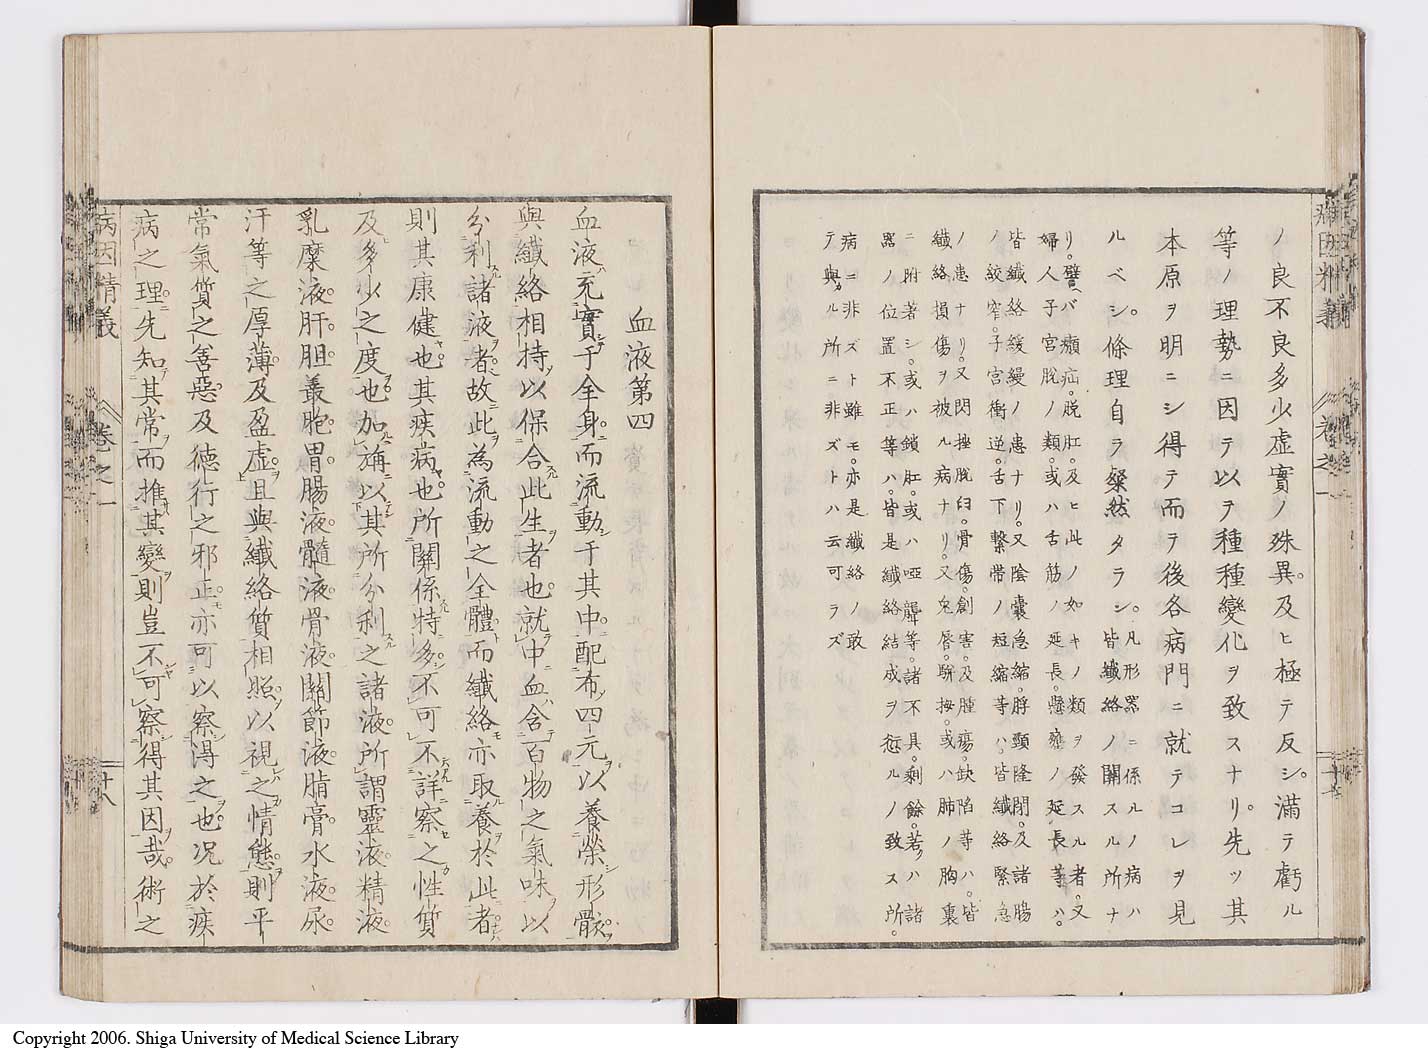 ノ良不良多少虚實ノ殊異。及ヒ極テ反シ。滿テ虧ル
等ノ理勢ニ因テ以テ種種變化ヲ致スナリ。先ツ其
本原ヲ明ニシ得テ而テ後各病門ニ就テコレヲ見
ルベシ。條理自ラ粲然タラン。凡形器ニ係ルノ病ハ
皆纎絡ノ關スル所ナ
リ。譬バ癩疝。脱肛。及ヒ此ノ如キノ類ヲ發スル者。又
婦人子宮脱ノ類。或ハ舌筋ノ延長。懸壅ノ延長等ハ。
皆纎絡緩縵ノ患ナリ。又陰嚢急縮。脬頸隆閉。及諸腸
ノ絞窄。子宮衝逆。舌下繋帶ノ短縮等ハ。皆纎絡緊急
ノ患ナリ。又閃挫脱臼。骨傷。創害。及腫瘍。缺陷等ハ。皆
纎絡損傷ヲ被ル病ナリ。又兔唇。駢拇。或ハ肺ノ胸裏
ニ附着シ。或ハ鎖肛。或ハ啞聾等。諸不具。剰餘。若クハ諸
器ノ位置不正等ハ。皆是纎絡結成ヲ愆ルノ致ス所。
病ニ非ズト雖モ。亦是纎絡ノ敢
テ與カル所ニ非ズトハ云可ラズ
病因精義
卷之一
血液第四
血液充實于全身而流動于其中配布四元以養榮形骸
與纎絡相持以保合此生者也就中血含百物之氣味以
分利諸液者故此為流動之全體而纎絡亦取養於此者
則其康健也其疾病也所關係特多不可不詳察之性質
及多少之度也加旃以其所分利之諸液所謂靈液精液
乳糜液肝胆嚢胞胃腸液髓液骨液關節液脂膏水液尿
汗等之厚薄及盈虚且與纎絡質相照以視之情態則平
常氣質之善惡及德行之邪正亦可以察淂之也況於疾
病之理先知其常而推其變則豈不可察得其因哉術之
病因精義
卷之一
十八
Copyright 2006. Shiga University of Medical Science Library